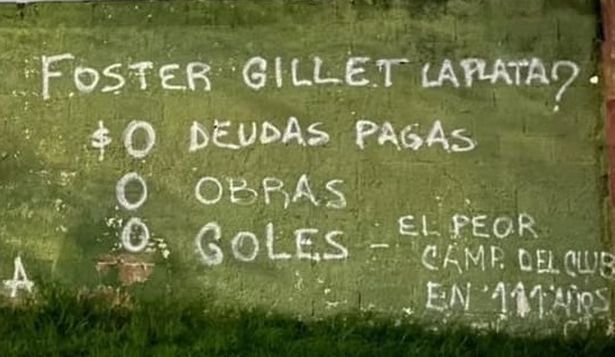 FOSTER GILLET LA PLATA?
$0 DEUDAS PAGAS
0 OBRAS
0 GOLES - EL PEOR
CAMP. DEL CLUB
EN 111 AÑOS
A